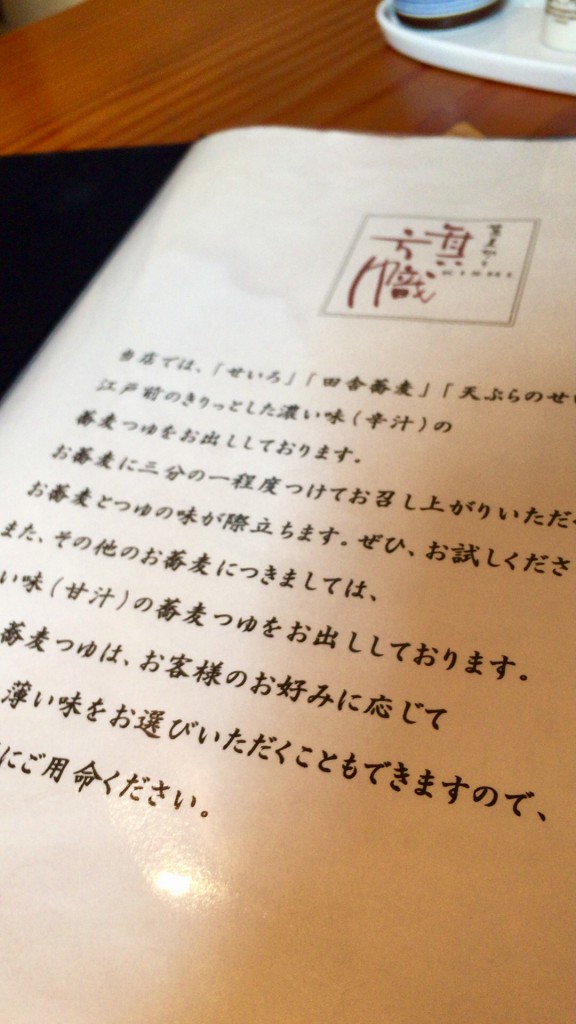 旗幟
KISHI
当店では、「せいろ」「田舎蕎麦」「天ぷらのせい
江戸前のきりっとした濃い味(辛汁)の
蕎麦つゆをお出ししております。
お蕎麦に三分の一程度つけてお召し上がりいただ
お蕎麦とつゆの味が際立ちます。ぜひ、お試しくださ
また、その他のお蕎麦につきましては、
い味(甘汁)の蕎麦つゆをお出ししております。
蕎麦つゆは、お客様のお好みに応じて
薄い味をお選びいただくこともできますので、
にご用命ください。